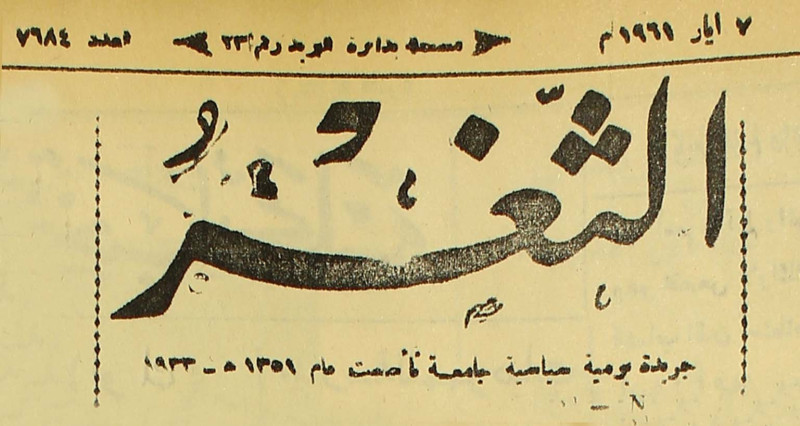 ٧ ايار ١٩٦١م مسجلة بدائرة البريد رقم ٢٣ العدد ٧٦٨٤
الثَّغْرُ
جريدة يومية سياسية جامعة تأسست عام ١٣٥١ هـ - ١٩٣٣